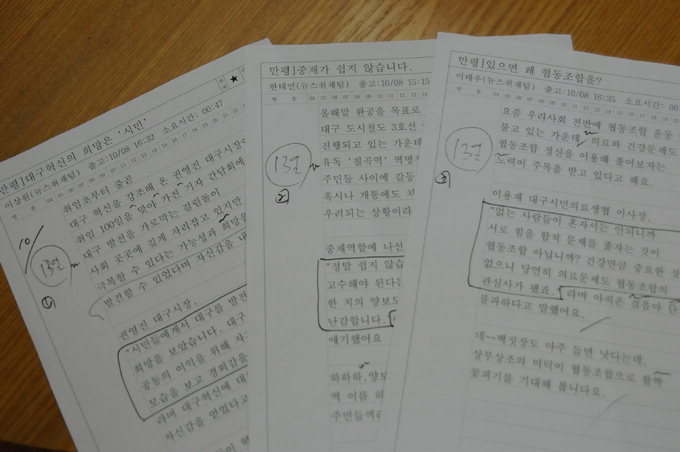 만평]대구혁신의 희망은 '시민'
이상원(뉴스취재팀) 출고:10/08 16:32 소요시간: 00:47
방 송 04 05 06 07 08 09 10 11 12 13 14 15 16 17 18 19
★
취임초부터 줄곧
대구 혁신을 강조해 온 권영진 대구시장이
취임 100일을 맞아 가진 기자 간담회에
대구 발전을 가로막는 걸림돌이
사회 곳곳에 깊게 자리잡고 있지만
극복할 수 있다는 가능성과 희망을
발견할 수 있었다며 자신감을
10/
13일
①
권영진 대구시장,
"시민들에게서 대구를 발전
희망을 보았습니다. 대구
공동의 이익을 위해
모습을 보고 경외감을
라며 대구혁신에
자신감을 얻었다고
만평]중재가 쉽지 않습니다.
한태연(뉴스취재팀) 출고:10/08 15:15
방 송 04 05 06 07 08 09 10 11 12 13 14 15
올해말 완공을 목표로
대구 도시철도 3호선
진행되고 있는 가운데
유독 '칠곡역' 역명
주민들 사이에 갈등
혹시나 개통에도
우려되는 상황이라
13일
②
중재역할에 나선
"정말 쉽지 않습
고수해야 된다는
한 치의 양보도
난감합니다.
얘기했어요
하하하, 양보
역 이름 하
주민들끼리
만평]있으면 왜 협동조합을?
이태우(뉴스취재팀) 출고:10/08 16:35 소요시간
방 송 04 05 06 07 08 09 10 11 12 13 14 15 16 17 18 19 20 21
요즘 우리사회 전반에 협동조합 운동
불고 있는 가운데, 의료와 건강문제도
협동조합 정신을 이용해 풀어보자는
노력이 주목을 받고 있다고 해요.
13일
③
이용재 대구시민의료생협 이사장,
"없는 사람들이 혼자서는 안되니까
서로 힘을 합쳐 문제를 풀자는 것이
협동조합 아닙니까? 건강만큼 중요한 것
없으니 당연히 의료문제도 협동조합의
관심사가 됐죠." 라며 아직은 걸음마
불과하다고 말했어요.
네--백짓장도 마주 들면 낫다는데,
상부상조의 미덕이 협동조합으로 활짝
꽃피기를 기대해 봅니다요.